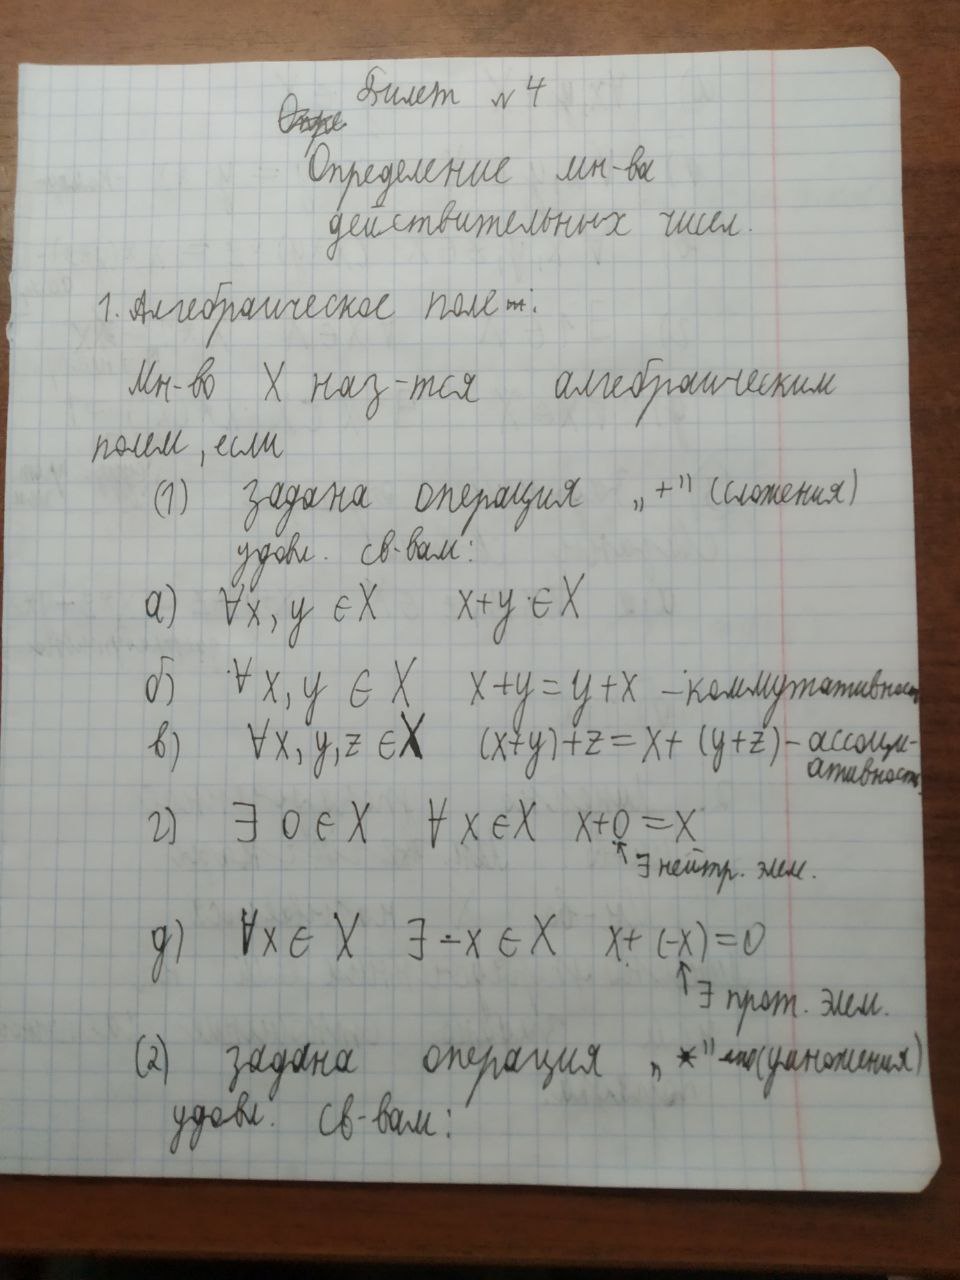 Билет № 4
Определение мн-ва
действительных чисел.
1. Алгебраическое поле:
Мн-во X наз-тся алгебраическим
полем, если
(1) задана операция „+" (сложения)
удовл. св-вам:
а) ∀x, y ∈ X x+y ∈ X
б) ∀x, y ∈ X x+y = y+x - коммутативность
в) ∀x, y, z ∈ X (x+y)+z = x+(y+z) - ассоци-
ативность
г) ∃ 0 ∈ X ∀ x ∈ X x+0 = x
↑ ∃ нейтр. элем.
д) ∀x ∈ X ∃ -x ∈ X x+(-x) = 0
↑ ∃ прот. элем.
(2) задана операция „*" (умножения)
удовл. св-вам: